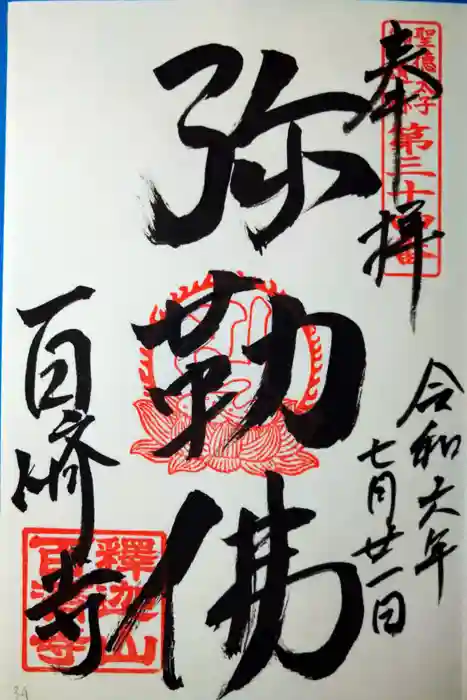 奉拝
聖徳太子
第三十四番
令和六年
七月廿一日
弥勒佛
百済寺
釋迦山
百済寺
34